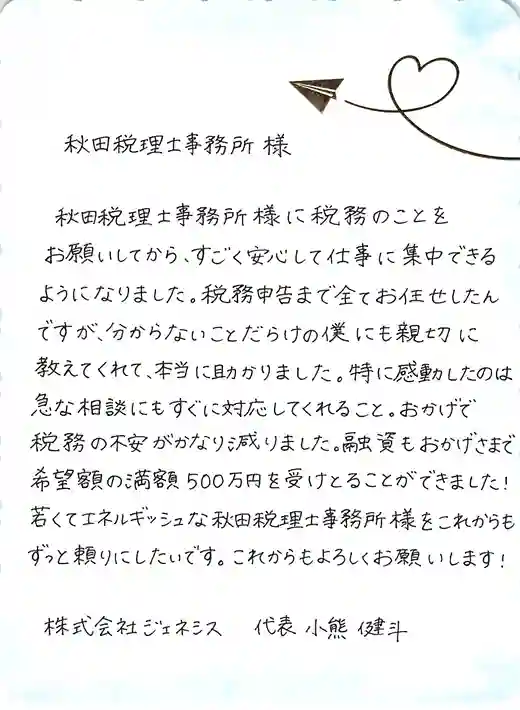 秋田税理士事務所 様
秋田税理士事務所様に税務のことを
お願いしてから、すごく安心して仕事に集中できる
ようになりました。税務申告まで全てお任せしたん
ですが、分からないことだらけの僕にも親切に
教えてくれて、本当に助かりました。特に感動したのは
急な相談にもすぐに対応してくれること。おかげで
税務の不安がかなり減りました。融資もおかげさまで
希望額の満額500万円を受けとることができました!
若くてエネルギッシュな秋田税理士事務所様をこれからも
ずっと頼りにしたいです。これからもよろしくお願いします!
株式会社ジェネシス 代表 小熊 健斗